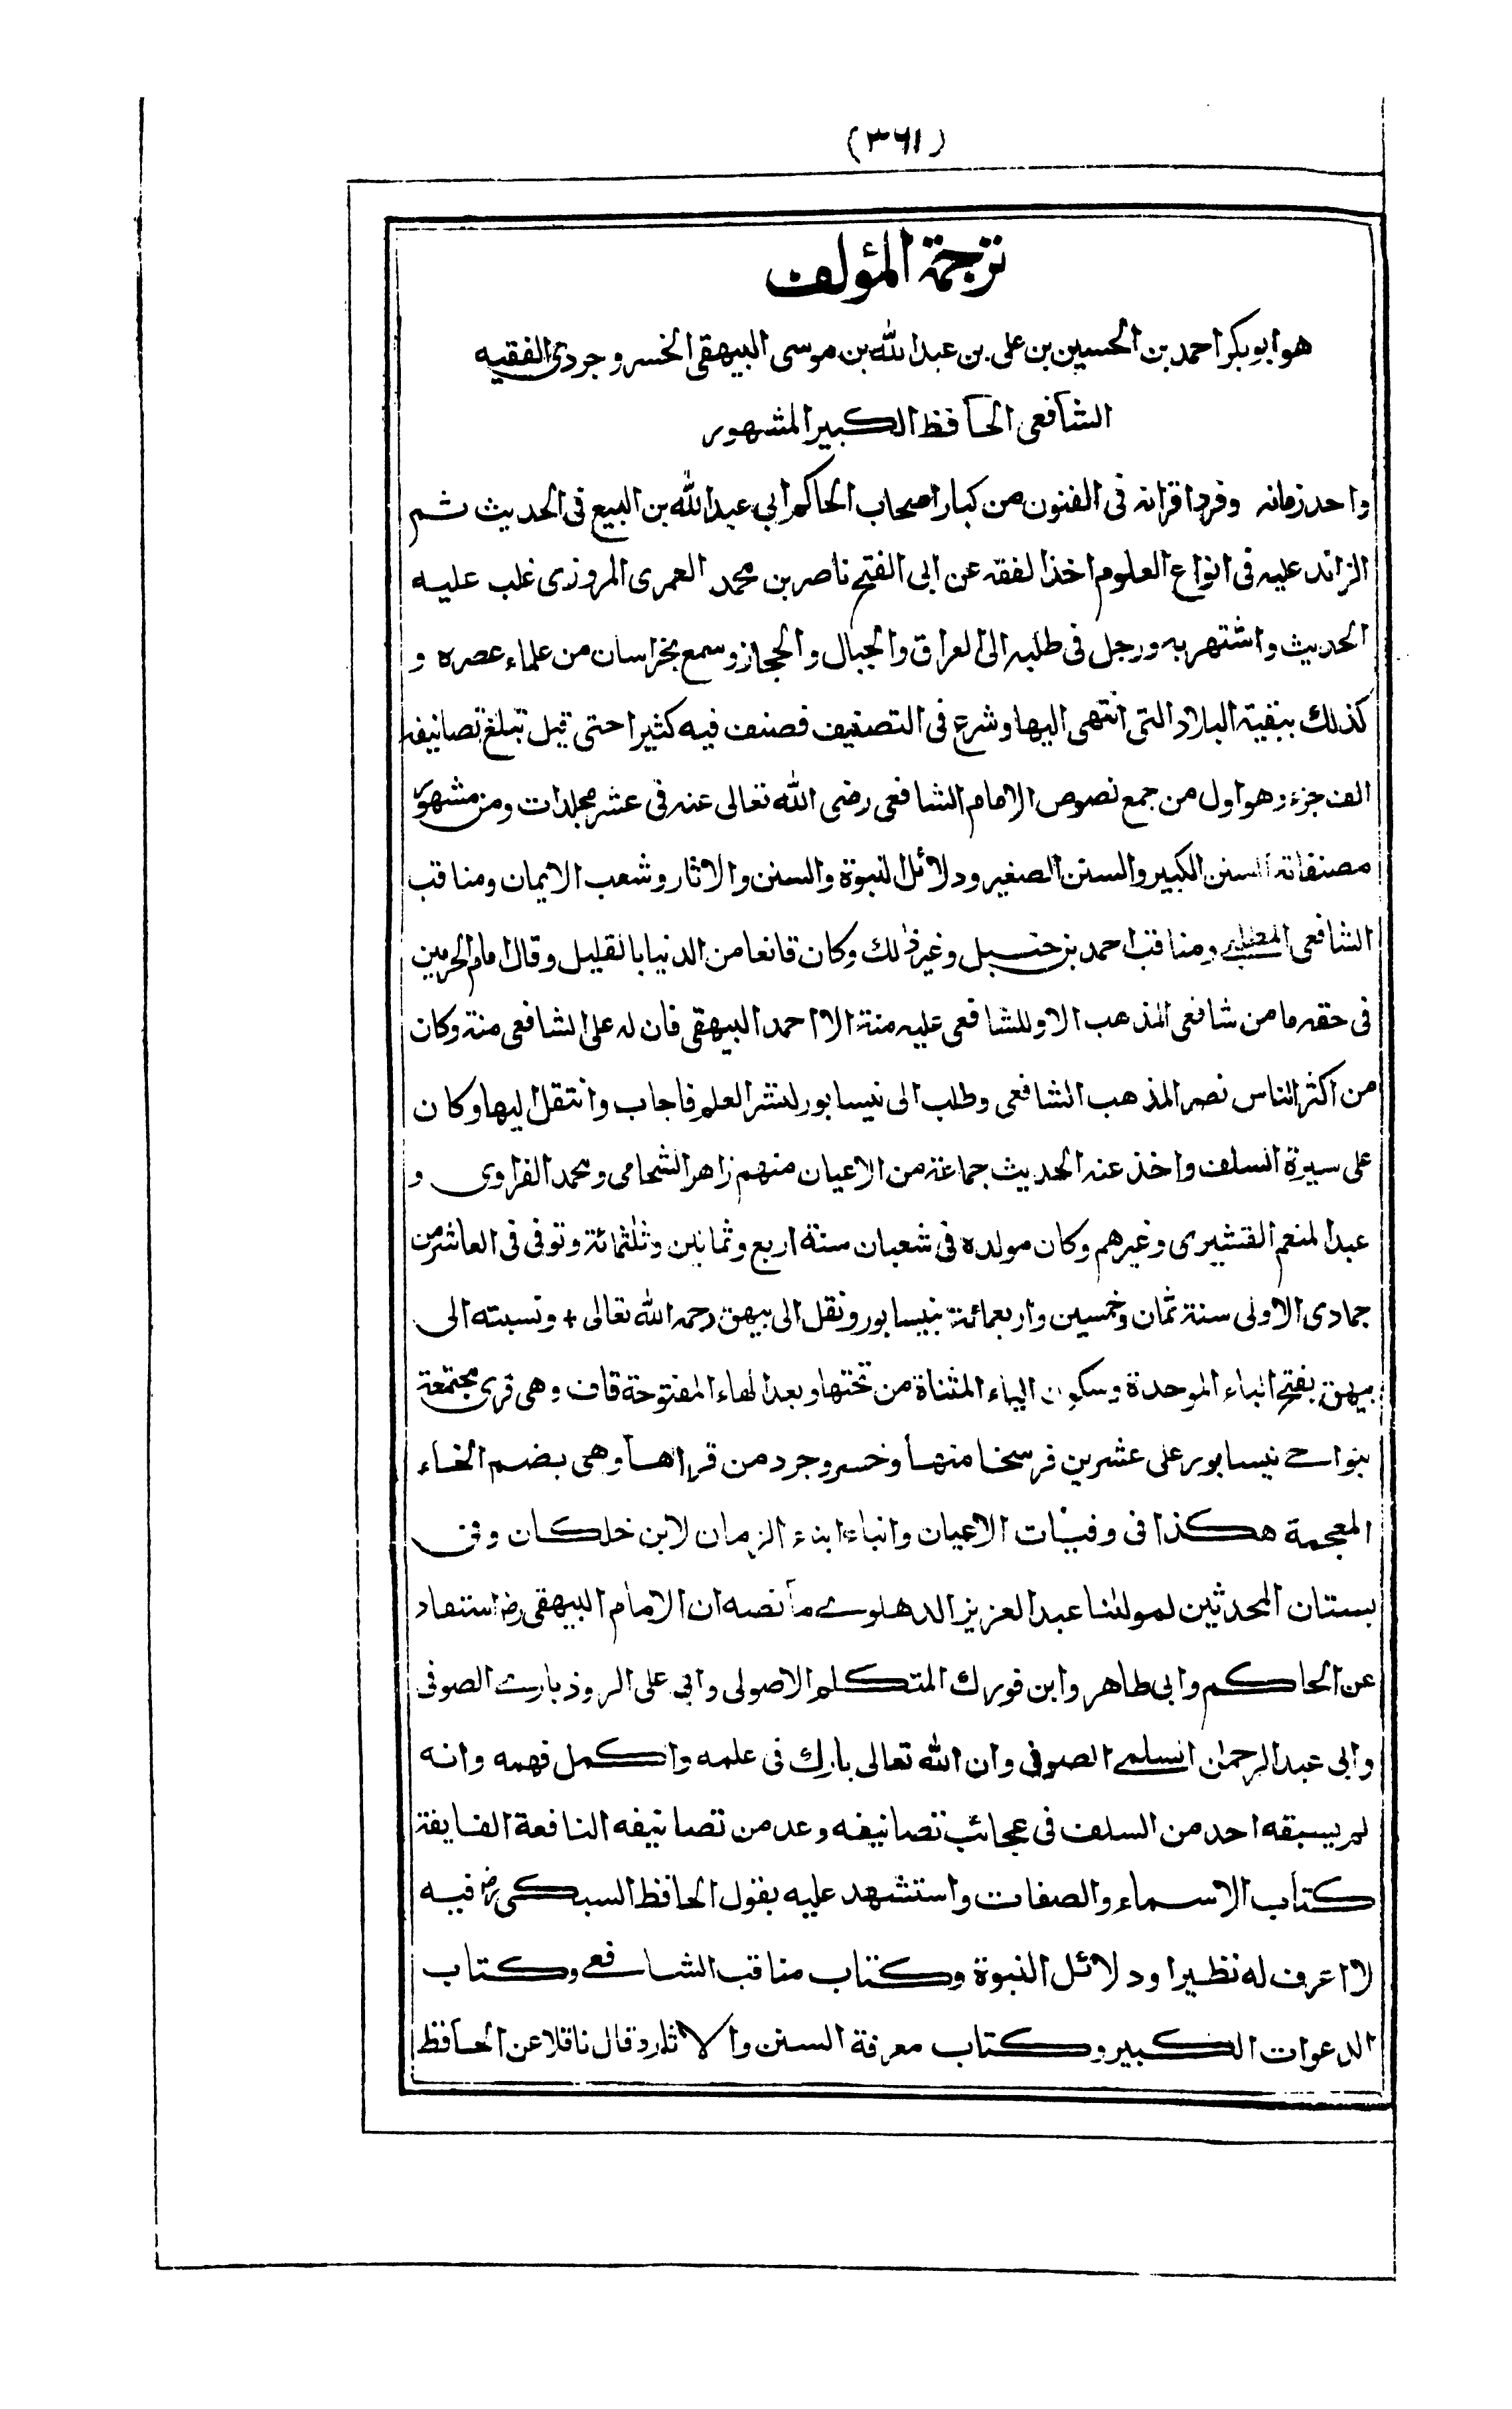 (٣٦١)
ترجمة المؤلف
هو ابوبكر احمد بن الحسين بن على بن عبد الله بن موسى البيهقى الخسروجردى الفقيه
الشافعى الحافظ الكبير المشهور
واحد زمانه وفرد اقرانه فى الفنون من كبار اصحاب الحاكم ابى عبد الله بن البيع فى الحديث ثم
الزائد عليه فى انواع العلوم اخذ الفقه عن ابى الفتح ناصر بن محمد العمرى المروزى غلب عليه
الحديث واشتهر به ورحل فى طلبه الى العراق والجبال والحجاز وسمع بخراسان من علماء عصره و
كذلك ببقية البلاد التى انتهى اليها وشرع فى التصنيف فصنف فيه كثيرا حتى قيل تبلغ تصانيفه
الف جزء وهو اول من جمع نصوص الامام الشافعى رضى الله تعالى عنه فى عشر مجلدات ومن مشهور
مصنفاته السنن الكبير والسنن الصغير ودلائل النبوة والسنن والاثار وشعب الايمان ومناقب
الشافعى المطلبى ومناقب احمد بن حنبل وغير ذلك وكان قانعا من الدنيا بالقليل وقال امام الحرمين
فى حقه ما من شافعى المذهب الا وللشافعى عليه منة الا احمد البيهقى فان له على الشافعى منة وكان
من اكثر الناس نصر المذهب الشافعى وطلب الى نيسابور لنشر العلم فاجاب وانتقل اليها وكان
على سيرة السلف واخذ عنه الحديث جماعة من الاعيان منهم زاهر الشحامى ومحمد الفراوى و
عبد المنعم القشيرى وغيرهم وكان مولده فى شعبان سنة اربع وثمانين وثلثمائة وتوفى فى العاشر من
جمادى الاولى سنة ثمان وخمسين واربعمائة بنيسابور ونقل الى بيهق رحمه الله تعالى + ونسبته الى
بيهق بفتح الباء الموحدة وسكون الياء المثناة من تحتها وبعد الهاء المفتوحة قاف وهى قرى مجتمعة
بنواحے نيسابور على عشرين فرسخا منها وخسروجرد من قراها وهى بضم الخاء
المعجمة هكذا فى وفيات الاعيان وانباء ابناء الزمان لابن خلكان وفى
بستان المحدثين لمولٰنا عبد العزيز الدهلوے ما نصه ان الامام البيهقى رح استفاد
عن الحاكم وابى طاهر وابن فورك المتكلم الاصولى وابى على الروذبارے الصوفى
وابى عبد الرحمٰن السلمے الصوفى وان الله تعالى بارك فى علمه واكمل فهمه وانه
لم يسبقه احد من السلف فى عجائب تصانيفه وعد من تصانيفه النافعة الفايقة
كتاب الاسماء والصفات واستشهد عليه بقول الحافظ السبكى رح فيه
لا اعرف له نظيرا ودلائل النبوة وكتاب مناقب الشافعے وكتاب
الدعوات الكبير وكتاب معرفة السنن والاثار وقال ناقلا عن الحافظ